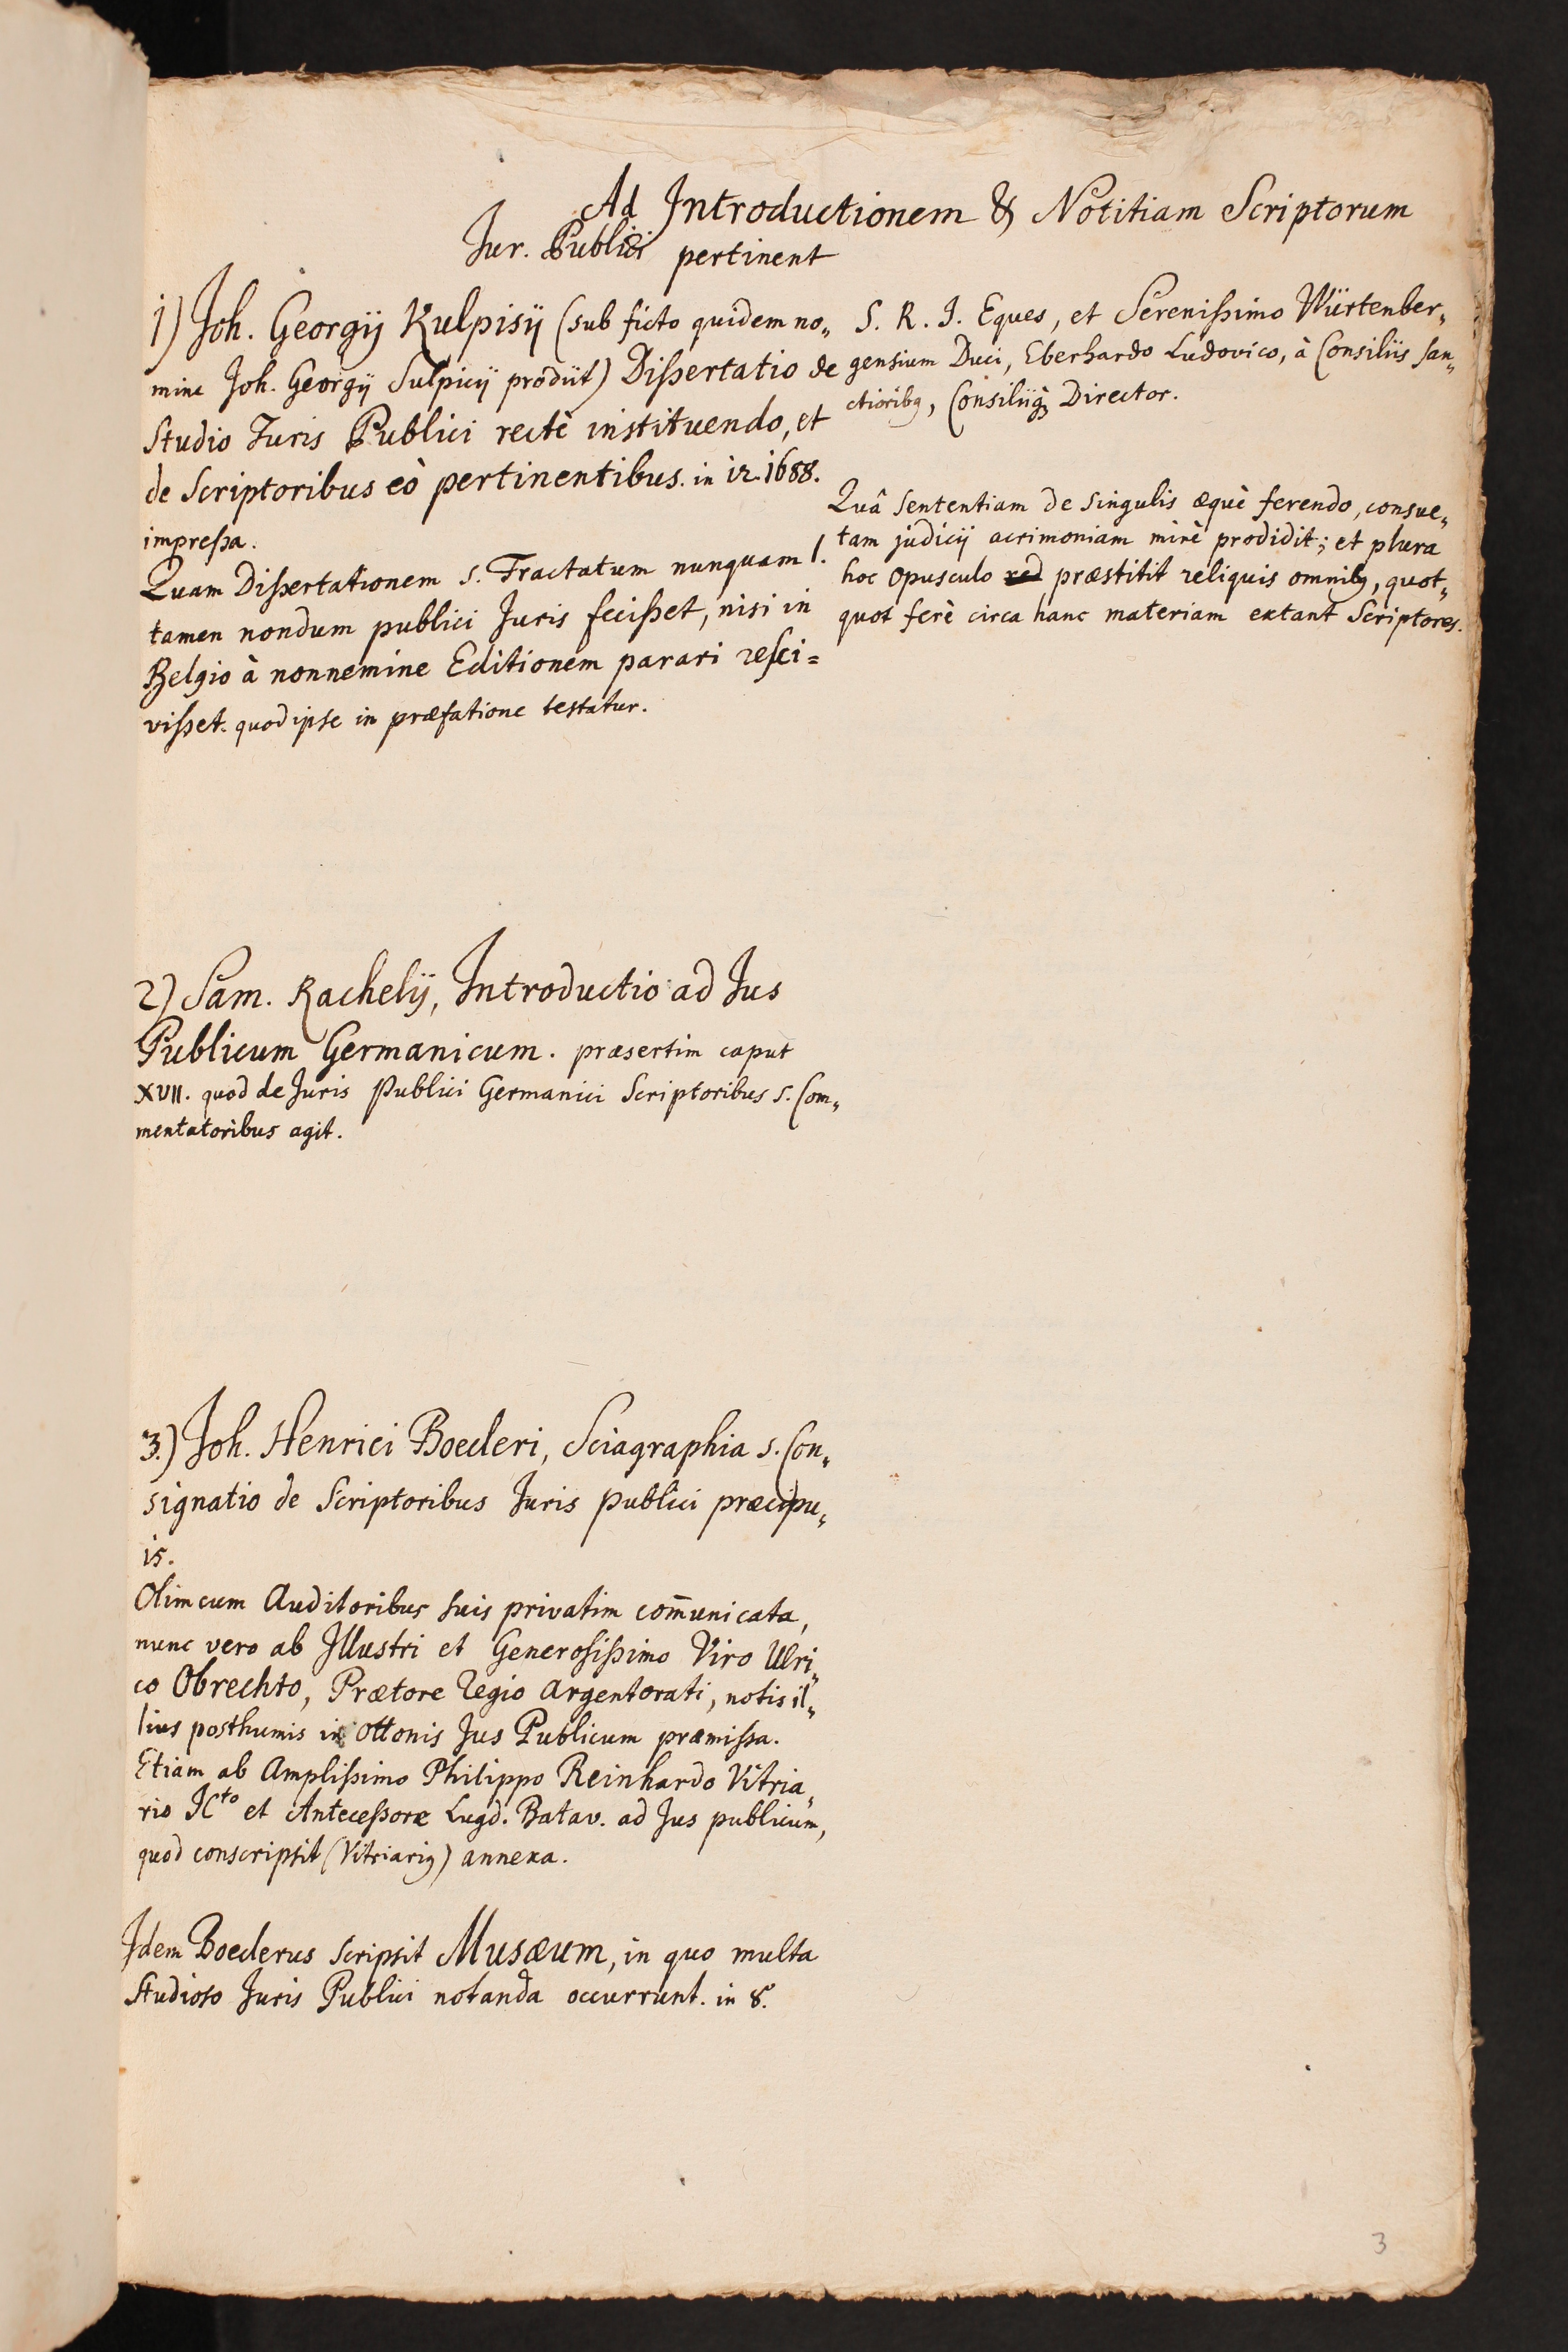 Ad Introductionem & Notitiam Scriptorum
Jur. Publici pertinent
1) Joh. Georgij Kulpisij (sub ficto quidem no„
mine Joh. Georgij Sulpicij prodiit) Dißertatio de
Studio Juris Publici rectè instituendo, et
de Scriptoribus eò pertinentibus. in 12. 1688.
impreßa.
Quam Dißertationem s. Tractatum nunquam l.
tamen nondum publici Juris fecißet, nisi in
Belgio à nonnemine Editionem parari resci=
vißet. quod ipse in præfatione testatur.
S. R. I. Eques, et Serenißimo Würtenber„
gensium Duci, Eberhardo Ludovico, à Consiliis san„
ctioribq, Consiliiq; Director.
Quâ sententiam de singulis æquè ferendo, consue„
tam judicij acrimoniam mirè prodidit; et plura
hoc opusculo red præstitit reliquis omnibq, quot„
quot ferè circa hanc materiam extant Scriptores.
2) Sam. Rachelij, Introductio ad Jus
Publicum Germanicum. præsertim caput
XVII. quod de Juris Publici Germanici Scriptoribus s. Com„
mentatoribus agit.
3.) Joh. Henrici Boecleri, Sciagraphia s. Con„
signatio de Scriptoribus Juris publici præcipu„
is.
Olim cum Auditoribus suis privatim com̄unicata,
nunc vero ab Illustri et Generosißimo Viro Ulri„
co Obrechto, Prætore Regio Argentorati, notis il„
lius posthumis in Ottonis Jus Publicum præmißa.
Etiam ab Amplißimo Philippo Reinhardo Vitria„
rio JCto et Anteceßore Lugd. Batav. ad Jus publicum,
quod conscripsit (Vitriariq) annexa.
Idem Boeclerus scripsit Musæum, in quo multa
studioso Juris Publici notanda occurrunt. in 8.
3